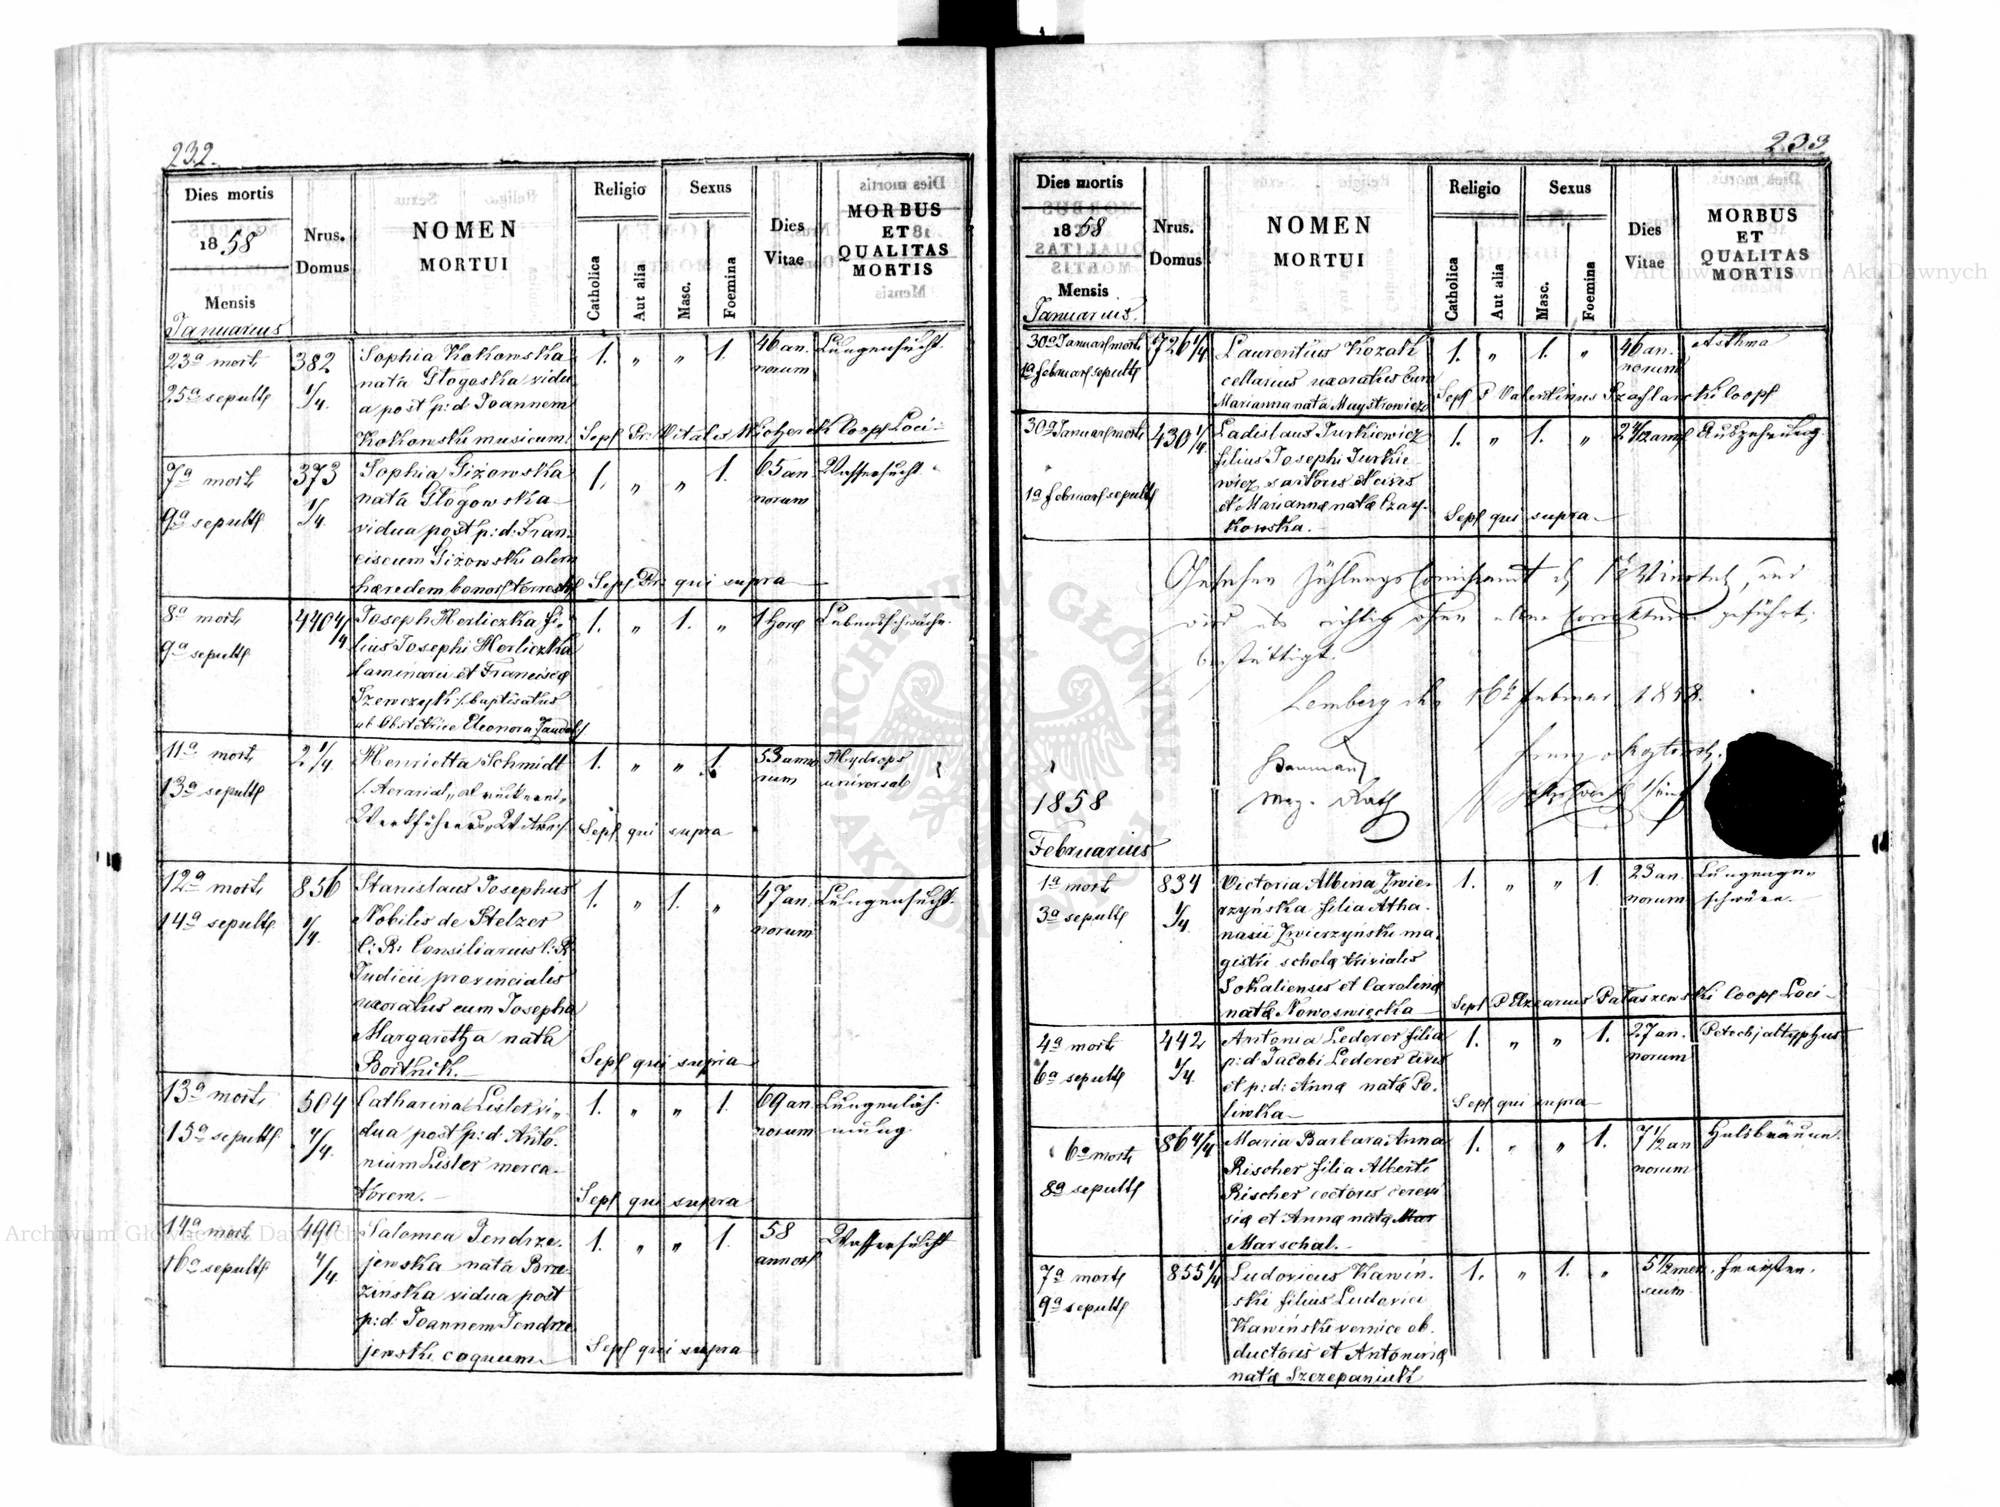 232.
Dies mortis
1858
Mensis
Januarius
Nrus.
Domus
NOMEN
MORTUI
Religio
Catholica
Aut alia
Sexus
Masc.
Foemina
Dies
Vitae
MORBUS
ET
QUALITAS
MORTIS
23a mort.
25a sepult.
382
1/4.
Sophia Kokowska
nata Głogoska vidu
a post p: d: Joannem
Kokowski musicum
1. „ „ 1.
46 an.
norum
Lungensucht
Sep. Pr: Vitalis Wicherek Coop. Loci
7a mort.
9a sepult.
373
1/4.
Sophia Giżowska
nata Głogowska
vidua post p: d: Fran.
ciscum Giżowski olim
haeredem bonor. terrest.
1. „ „ 1.
65 an
norum
Wassersucht
Sep. Pr: qui supra
8a mort.
9a sepult.
440 4/4
Joseph Herliczka fi„
lius Josephi Herliczka
laminarii et Francisca
Szewczyk /: baptisatus
ab Obstetrice Eleonora
1. „ 1. „
1 Hora
Lebensschwäche.
11a mort.
13a sepult.
2 1/4
Henrietta Schmidt
/: Aerarial„
Werkführers„ Witwe
1. „ „ 1.
53 anno
rum
Hydrops
universal
Sep. qui supra
12a mort.
14a sepult.
856
1/4.
Stanislaus Josephus
Nobilis de Stelzer
C: R: Consiliarius C: R:
Judicii provincialis
uxoratus cum Josepha
Margaretha nata
Bortnik.
1. „ 1. „
47 an.
norum
Lungensucht.
Sep. qui supra
13a mort.
15a sepult.
504
4/4.
Catharina Lister vi„
dua post p: d: Anto.
nium Lister merca
torem.
1. „ „ 1.
69 an
norum
Lungenläh.
mung
Sep. qui supra
14a mort.
16a sepult.
490
4/4
Salomea Jendrze.
jewska nata Brze
zińska vidua post
p: d: Joannem Jendrze
jewski coquum
1. „ „ 1.
58
annor.
Wassersucht
Sep. qui supra
233
Dies mortis
1858
Mensis
Januarius.
Nrus.
Domus
NOMEN
MORTUI
Religio
Catholica
Aut alia
Sexus
Masc.
Foemina
Dies
Vitae
MORBUS
ET
QUALITAS
MORTIS
30a Januar. mort.
1a Februar. sepult.
726 1/4
Laurentius Kozak
cellarius uxoratus cum
Marianna nata Maystrowicz
1. „ 1. „
46 an.
norum
Asthma
Sep. P Valentinus Szaflarski Coop.
30a Januar. mort.
1a Februar. sepult.
430 1/4
Ladislaus Jurkiewicz
filius Josephi Jurkie
wicz sartoris et civis
et Marianna nata Czay.
kowska.
1. „ 1. „
2 1/2 ann.
Auszehrung.
Sep. qui supra
und
wird als richtig ohne geführt,
bestättigt.
Lemberg den 16t Februar 1858.
Mag. Rath
1858
Februarius
1a mort.
3a sepult.
834
1/4
Victoria Albina Zwie.
rzyńska filia Atha.
nasii Zwierzyński ma.
gistri schola trivialis
Sokaliensis et Carolina
nata Nowoswięcka
1. „ „ 1.
23 an.
norum
Lungenge„
schwüre.
Sep. P Elzearius Pałaszewski Coop. Loci
4a mort.
6a sepult.
442
1/4.
Antonia Lederer filia
p: d: Jacobi Lederer civis
et p: d: Anna nata Po.
liwka
1. „ „ 1.
27 an.
norum
Petechjaltyphus
Sep. qui supra
6a mort.
8a sepult.
864/4
Maria Barbara Anna
Rischer filia Alberti
Rischer coctoris cerevi
sia et Anna nata Mar
Marschal.
1. „ „ 1.
7 1/2 an
norum
Halsbräune.
7a mort.
9a sepult.
855 1/4
Ludovicus Kawiń.
ski filius Ludovici
Kawiński vernice ob.
ductoris et Antonina
nata Szczepaniuk
1. „ 1. „
5 1/2 men.
sium
Fraisen.
Archiwum Główne Akt Dawnych
Archiwum Główne Akt Dawnych
ARCHIWUM GŁÓWNE AKT DAWNYCH